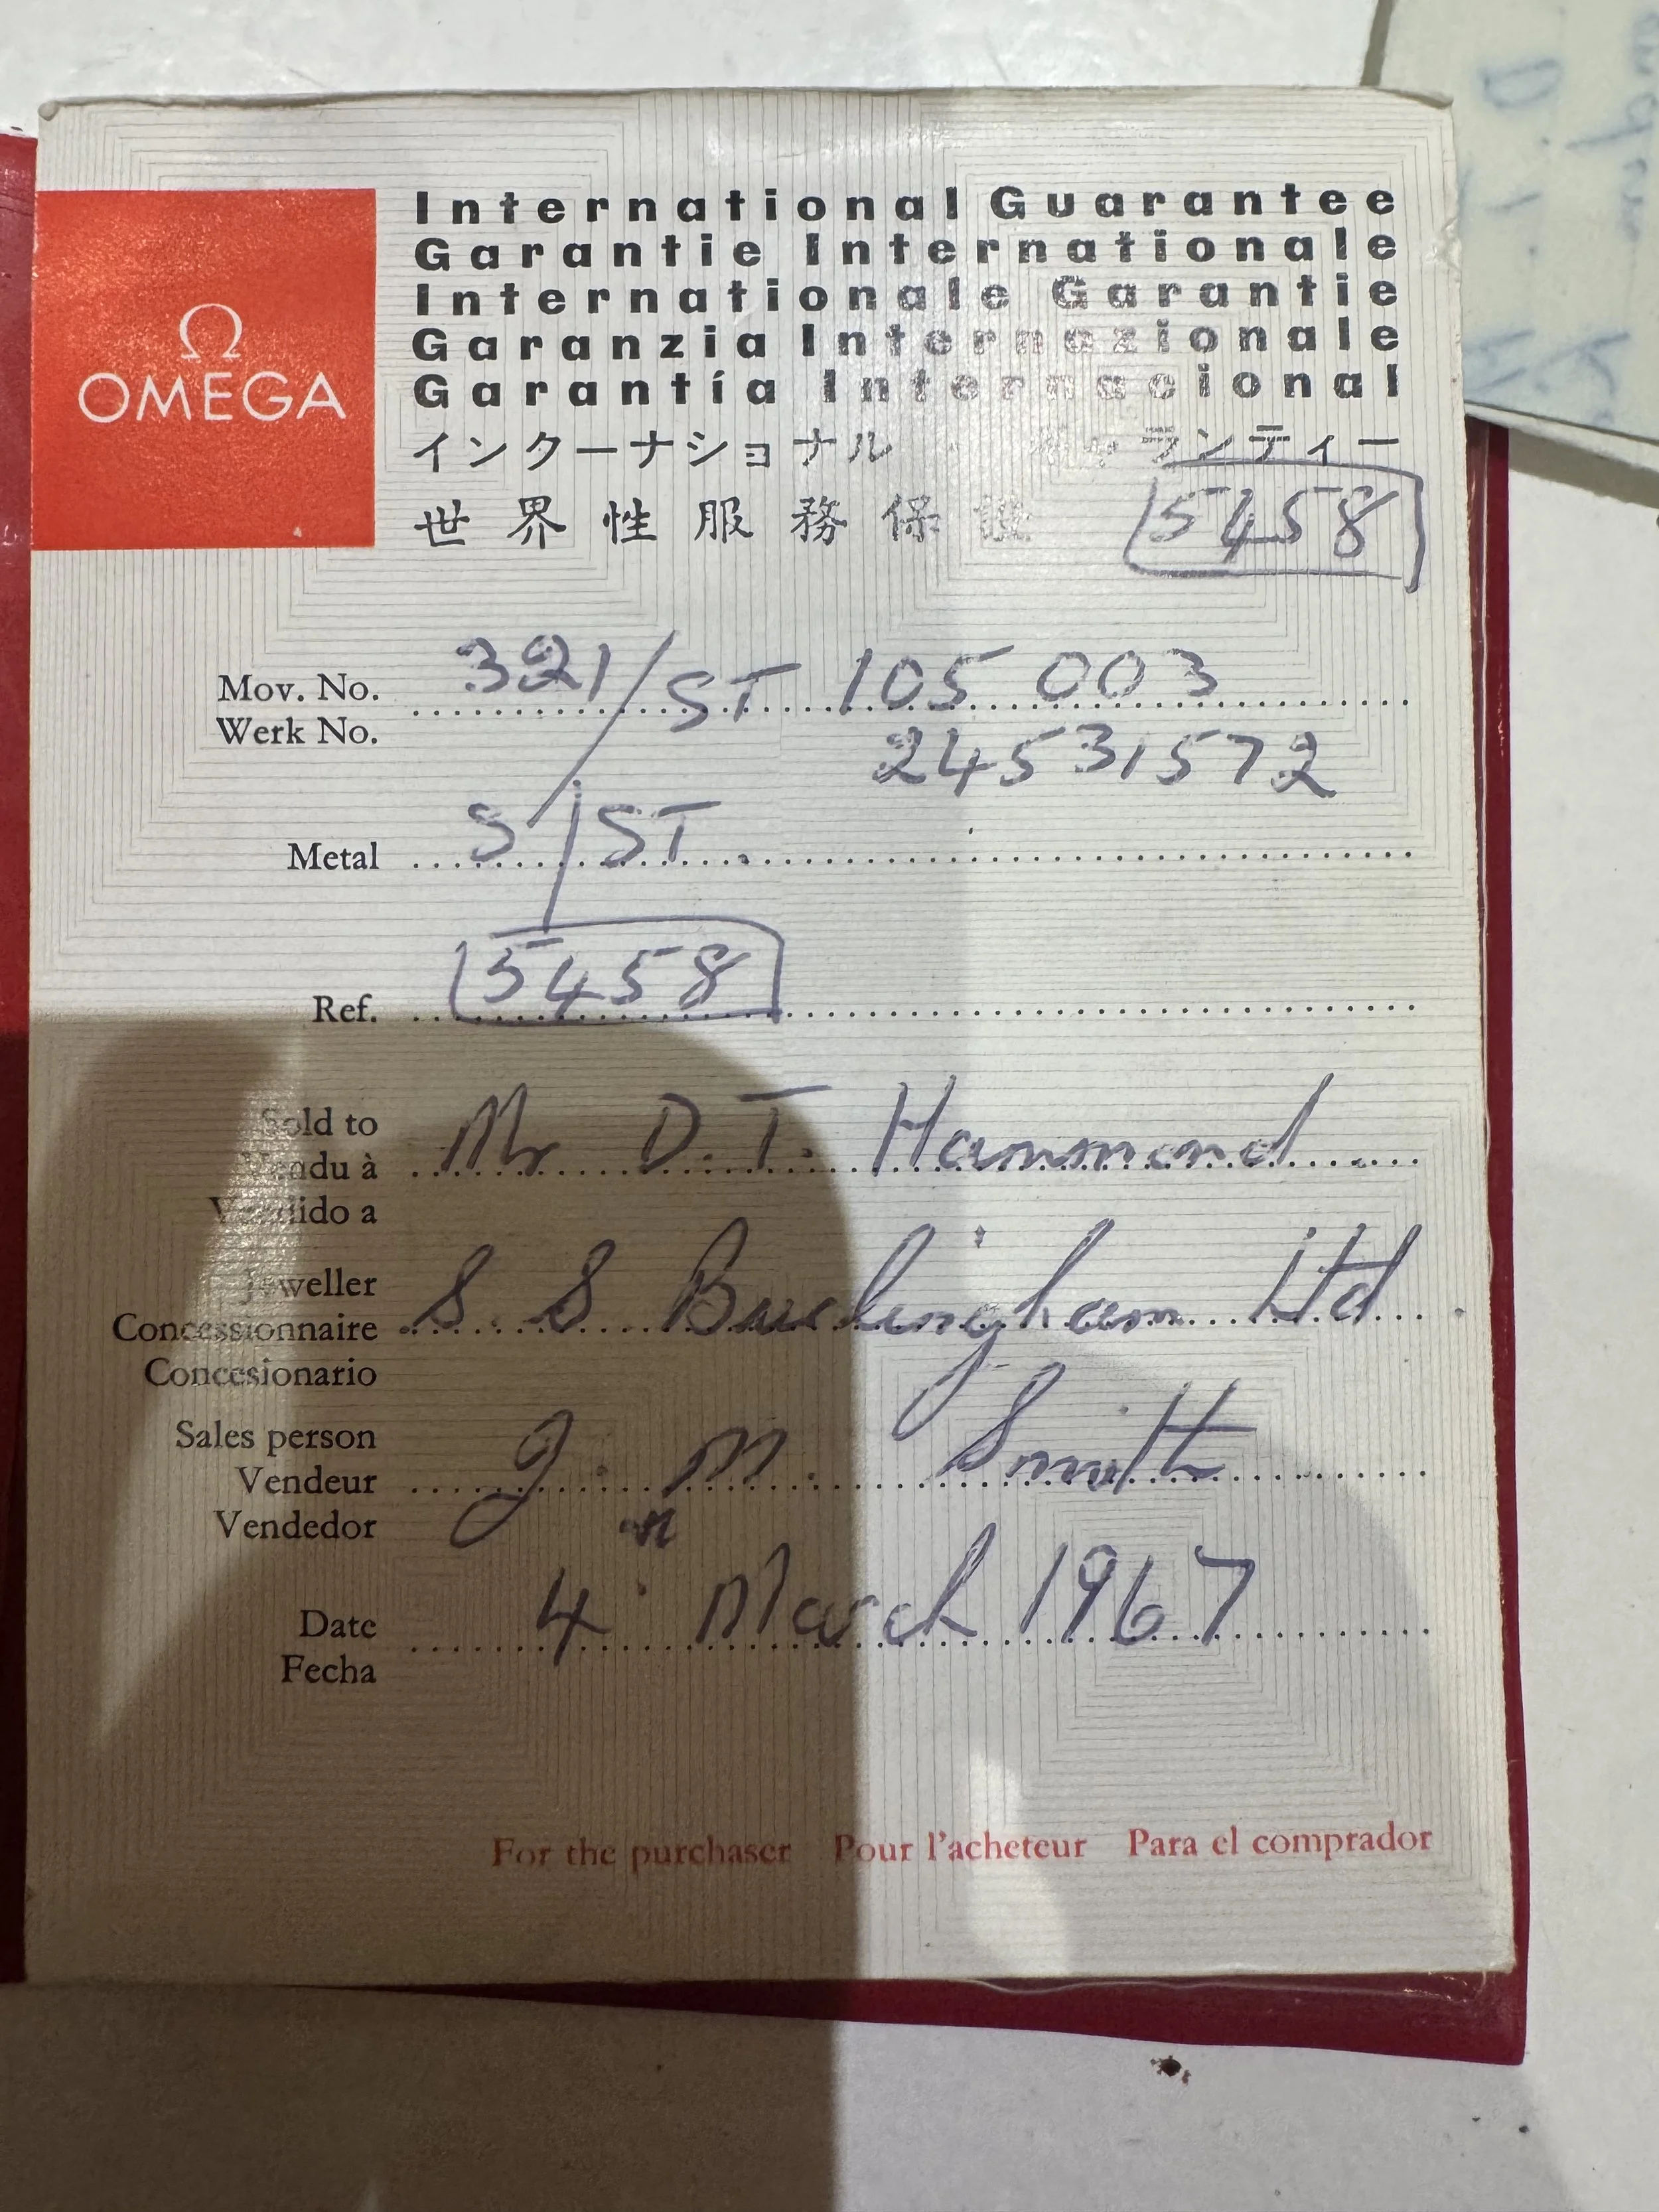 Ω
OMEGA
International Guarantee
Garantie Internationale
Internationale Garantie
Garanzia Internazionale
Garantía Internacional
インターナショナル・ギャランティー
世界性服務保証
5458
Mov. No. 321/ST 105 003
Werk No. 24531572
Metal S/ST.
Ref. 5458
Sold to
Vendu à Mr D. T. Hammond
Vendido a
Jeweller
Concessionnaire S. S Buckingham Ltd
Concesionario
Sales person
Vendeur J. M. Smith
Vendedor
Date 4 March 1967
Fecha
For the purchaser Pour l'acheteur Para el comprador